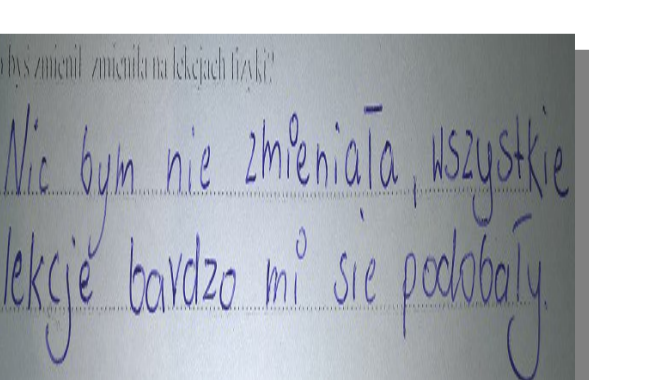 byś zmienił zmieniła na lekcjach fizyki?
Nic bym nie zmieniała, wszystkie
lekcje bardzo mi się podobały.